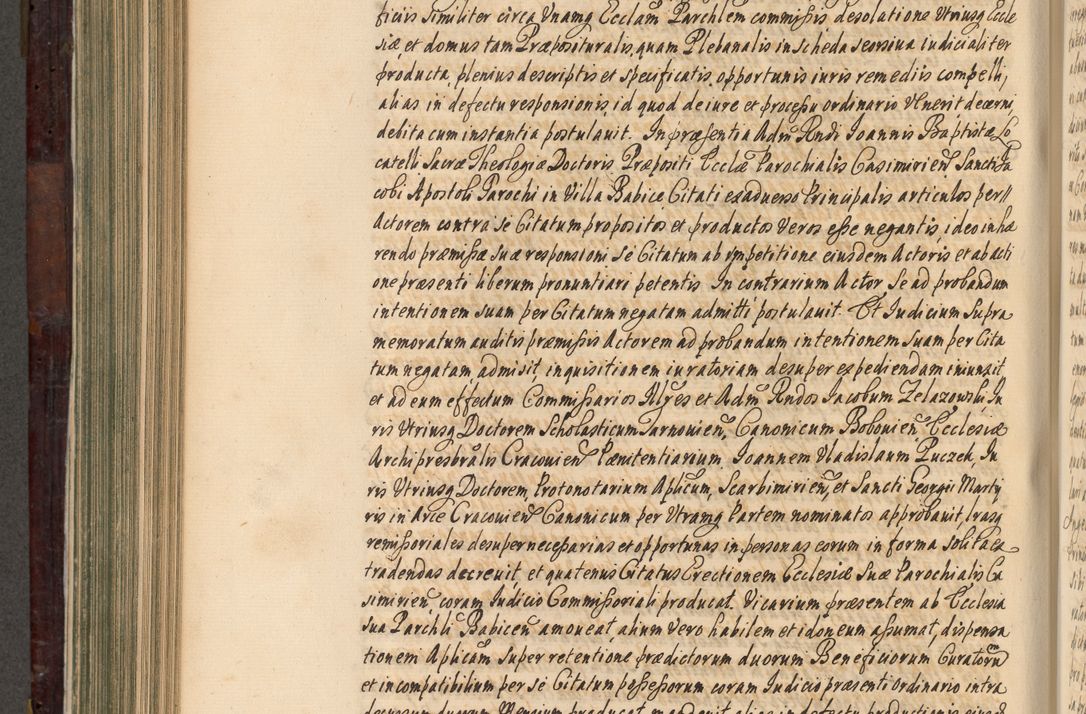 ficiis Similiter circa Unamq Ecclam Parchlem commissis desolatione Utriusq Eccle
siæ et domus tam Præposituralis, quam Plebanalis in scheda seorsiva iudicialiter
producta, plenius descriptis et specificatis, opportunis iuris remediis compelli,
alias in defectu responsionis, id quod de iure et processu ordinario Venerit decerni,
debita cum instantia postulavit. In præsentia Adm Rndi Ioannis Baptistæ Lo
catelli Sacræ Theologiæ Doctoris Præpositi Ecclæ Parochialis Casimirien Sancti Ia
cobi Apostoli Parochi in Villa Babice Citati ex adverso Principalis articulos per
Actorem contra se Citatum propositos et productos Veros esse negantis, ideo inhæ
rendo præmissæ suæ responsioni Se Citatum ab impetitione eiusdem Actoris et ab acti
one præsenti liberum pronuntiari petentis In contrarium Actor Se ad probandum
intentionem suam per Citatum negatam admitti postulavit. Et Iudicium Supra
memoratum auditis præmissis Actorem ad probandum intentionem Suam per Cita
tum negatam admisit, inquisitionem iuratoriam desuper expediendam iniunxit
et ad eum effectum Commissarios Illres et Adm Rndos Iacobum Zelazowski Iu
ris Utriusq Doctorem Scholasticum Tarnovien, Canonicum Bobovien Ecclesiæ
Archipresbralis Cracovien Pænitentiarium, Ioannem Vladislaum Puczek, Iu
ris Utriusq Doctorem, Protonotarium Aplicum, Scarbimirien, et Sancti Georgii Marty
ris in Arce Cracovien Canonicum per Utramq Partem nominatos approbavit, lrasq
remissoriales desuper necessarias et opportunas in personas eorum in forma Solita ex
tradendas decrevit, et quatenus Citatus Erectionem Ecclesiæ Suæ Parochialis Ca
simirien, coram Iudicio Commissoriali producat. Vicarium præsentem ab Ecclesia
sua Parchli Babicen amoveat, alium Vero habilem et idoneum assumat, dispensa
tionem Aplicam Super retentione prædictorum duorum Beneficiorum Curatorum
et incompatibilium per se Citatum possessorum coram Iudicio præsenti ordinario intra